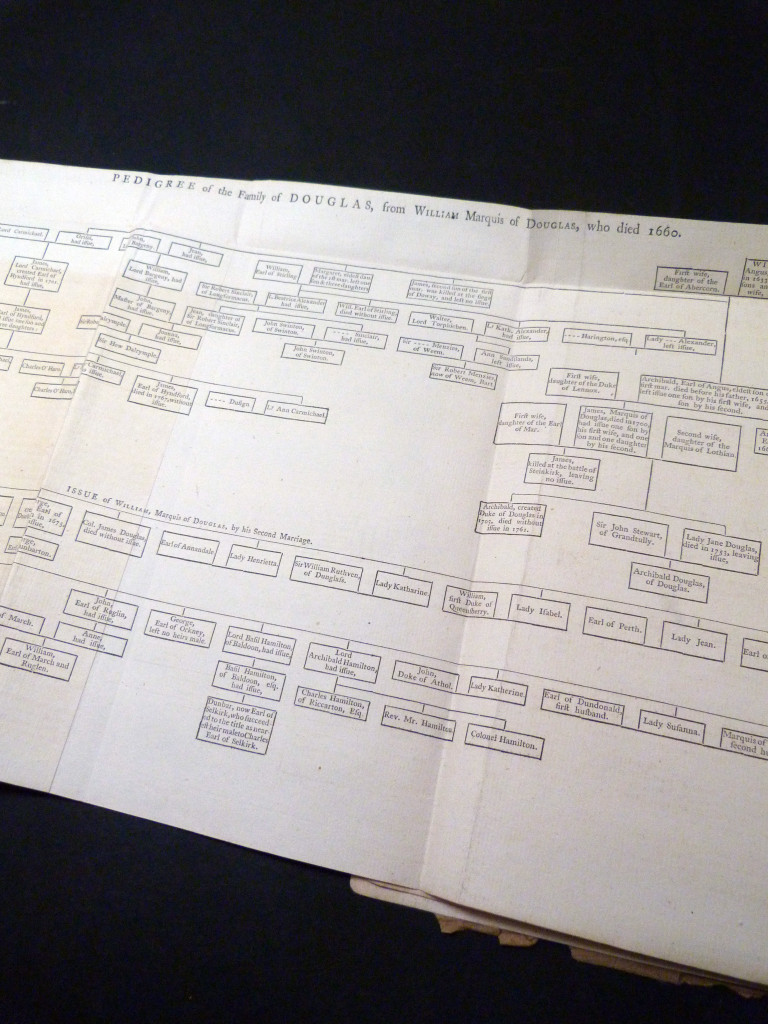 PEDIGREE of the Family of DOUGLAS, from WILLIAM Marquis of DOUGLAS, who died 1660.
Lord Carmichael,
had iſſue,
had iſſue,
James,
Lord Carmichael,
created Earl of
Hyndford in 1701
had iſſue,
William,
Lord Bargeny, had
iſſue,
John,
Maſter of Bargeny
had iſſue,
Joanna,
had iſſue,
Sir Hew Dalrymple,
Carmichael
James,
Earl of Hyndford,
died in 1767, without
iſſue,
---- Dufign
Lʸ Ann Carmichael,
Sir Robert Sinclair,
of Longformacus.
Jean, daughter of
Sir Robert Sinclair,
of Longformacus.
William,
Earl of Stirling
L. Beatrix Alexander
had iſſue,
John Swinton,
of Swinton.
John Swinton,
of Swinton.
Will. Earl of Stirling,
died without iſſue.
---- Sinclair,
had iſſue,
Walter,
Lord Torpichen.
Sir ---- Menzies,
of Weem.
Sir Robert Menzies,
now of Weem, Bart.
Lʸ Kath. Alexander,
had iſſue,
Ann Sandilands,
left iſſue,
---- Harington, eſq.
Lady ---- Alexander,
left iſſue,
Firſt wife,
daughter of the
Earl of Abercorn.
Firſt wife,
daughter of the Duke
of Lennox.
Archibald, Earl of Angus, eldeſt ſon
firſt mar. died before his father, 1655
left iſſue one ſon by his firſt wife, and
ſon by his ſecond.
Firſt wife,
daughter of the Earl
of Mar.
James, Marquis of
Douglas, died in 1700,
had iſſue one ſon by
his firſt wife, and one
ſon and one daughter
by his ſecond.
Second wife,
daughter of the
Marquis of Lothian.
James,
killed at the battle of
Steinkirk, leaving
no iſſue.
Archibald, created
Duke of Douglas in
1703, died without
iſſue in 1761.
Sir John Stewart,
of Grandtully.
Lady Jane Douglas,
died in 1753, leaving
iſſue,
Archibald Douglas,
of Douglas.
ISSUE of WILLIAM, Marquis of DOUGLAS, by his Second Marriage.
Col. James Douglas,
died without iſſue.
Earl of Annandale.
Lady Henrietta.
Sir William Ruthven,
of Dunglaſs.
Lady Katharine.
William,
firſt Duke of
Queenſberry.
Lady Iſabel.
Earl of Perth.
Lady Jean.
of March.
William,
Earl of March and
Ruglen.
John,
Earl of Ruglin,
had iſſue,
Anne,
had iſſue,
George,
Earl of Orkney,
left no heirs male.
Lord Baſil Hamilton,
of Baldoon, had iſſue,
Baſil Hamilton,
of Baldoon, eſq.
had iſſue,
Dunbar, now Earl of
Selkirk, who ſucceed-
ed to the title as near-
eſt heir male to Charles
Earl of Selkirk.
Lord
Archibald Hamilton,
had iſſue,
Charles Hamilton,
of Riccarton, Eſq.
John,
Duke of Athol.
Rev. Mr. Hamilton
Lady Katherine.
Colonel Hamilton.
Earl of Dundonald,
firſt huſband.
Lady Suſanna.
Marquis of